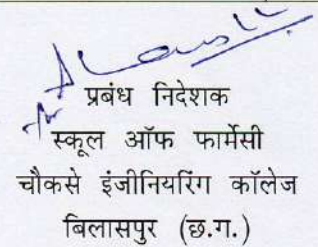 प्रबंध निदेशक
स्कूल ऑफ फार्मेसी
चौकसे इंजीनियरिंग कॉलेज
बिलासपुर (छ.ग.)